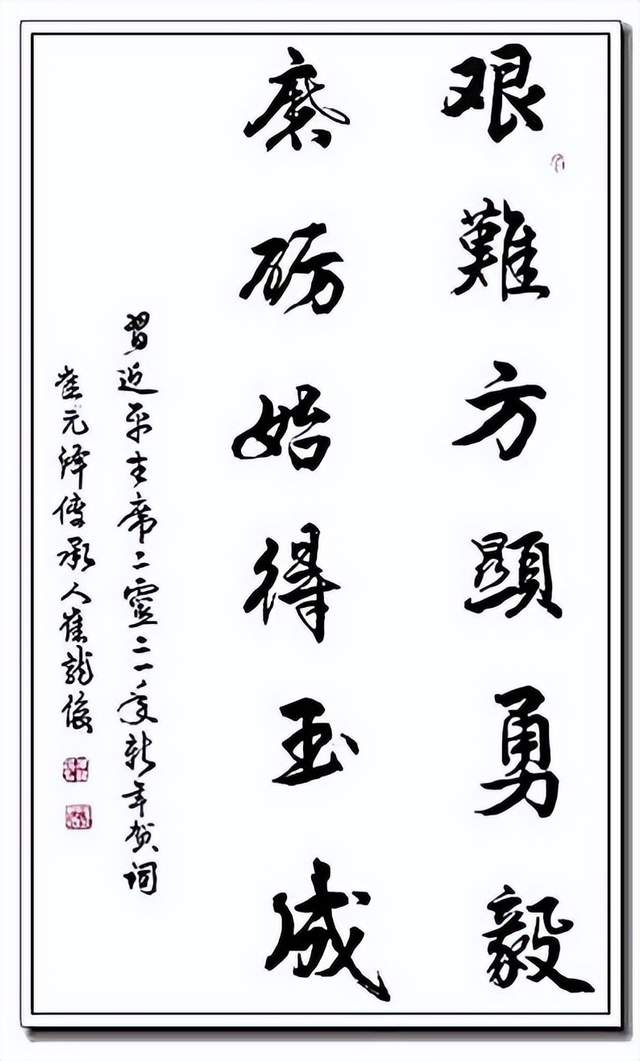 艰難方顯勇毅
磨砺始得玉成
習近平主席二零二一年新年贺词
崔元傳承人崔龍俊